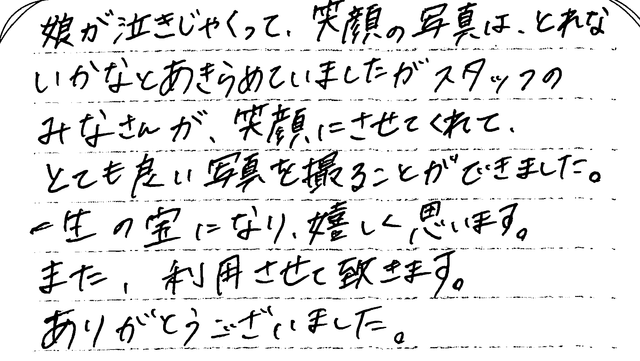 娘が泣きじゃくって、笑顔の写真は、とれな
いかなとあきらめていましたがスタッフの
みなさんが、笑顔にさせてくれて、
とても良い写真を撮ることができました。
一生の宝になり、嬉しく思います。
また、利用させて致きます。
ありがとうございました。